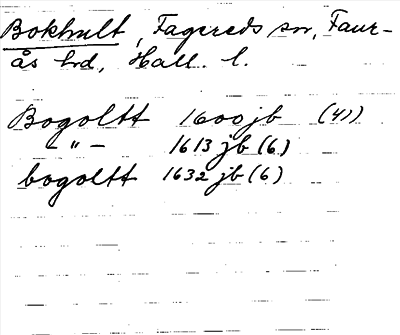 Bokhult, Fagereds sn, Faur-
ås hd, Hall. l.
Bogoltt 1600 jb (4))
– " – 1613 jb (6)
bogoltt 1632 jb (6)